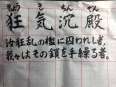 きょう き ちん でん
狂気沈殿
冷狂乱の檻に囚われし者、
我々はその鎖を手繰る者。